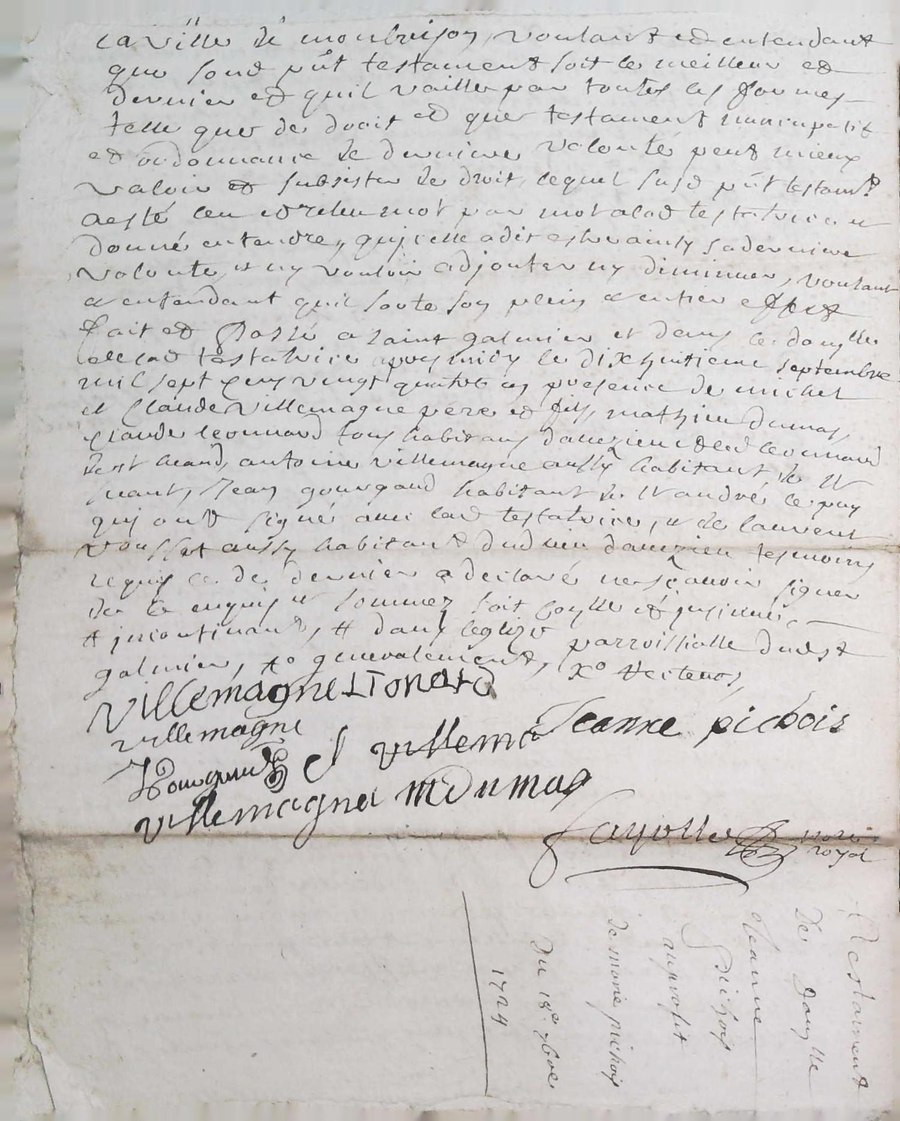 la ville de montbrison, voulant et entendant
que sond pñt testament soit le meilleur et
dernier et quil vaille par toutes les formes
telle que de droit et que testament nuncupatif
et ordonnance de derniere volonté peut mieux
valoir et subsister de droit, lequel susd pñt testamt
a esté leu et releu mot par mot a lad testatrice et
donné entendre, qui icelle a dit estre ainsy sa derniere
volonte, et ny vouloir adjouter ny diminuer, voulant
et entendant quil sorte son plein et entier effect
fait et passé a saint galmier et dans le domicille
de lad testatrice apres midy le dixhuitieme septembre
mil sept cens vingt quatre en presence de michel
et Claude villemagne pere et fils, mathieu dumas,
Claude leonnard tous habitans dauzieu led leonnard
de st heand, antoine villemagne aussy habitant de st
heant, Jean gourgaud habitant de st andré le puy
qui ont signé avec lad testatrice, et de laurent
rousset aussy habitant dud lieu dauzieu tesmoins
requis ce dernier a declaré ne sçavoir signer
de ce enquis et sommez soit
et incontinant, et dans leglize parroissialle dud st
galmier, generalement,
villemagne Lionard
villemagne
Gourgaud C villema Jeanne pichois
villemagne m Dumas
fayolle nore
royal
Testament
De Danlle
Jeanne
pichois
au profit
de marie pichois
Du 18e 7bre
1724